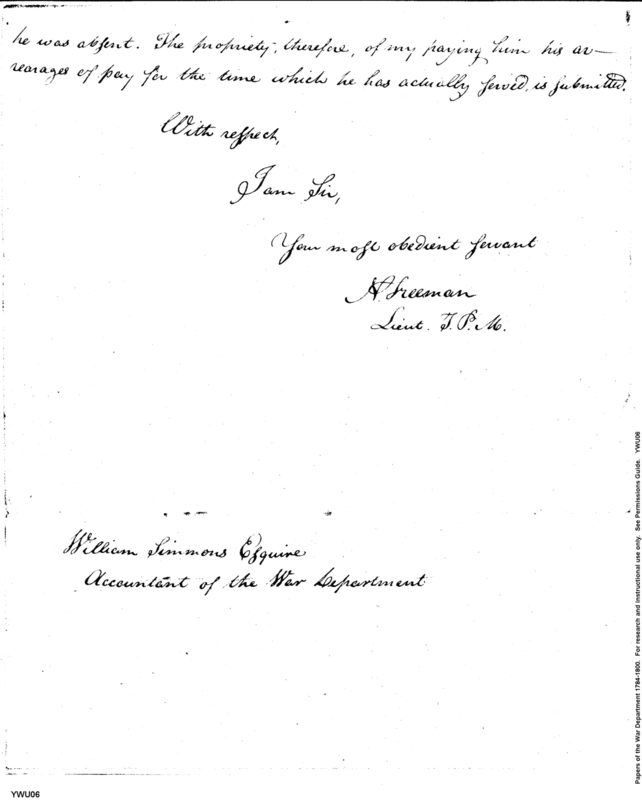 he was absent. The propriety, therefore, of my paying him his ar-
rearages of pay for the time which he has actually served, is submitted.
With respect,
I am Sir,
Your most obedient servant
A. Freeman
Lieut. T. P. M.
William Simmons Esquire
Accountant of the War Department
Papers of the War Department 1784-1800. For research and instructional use only. See Permissions Guide. YWU06
YWU06